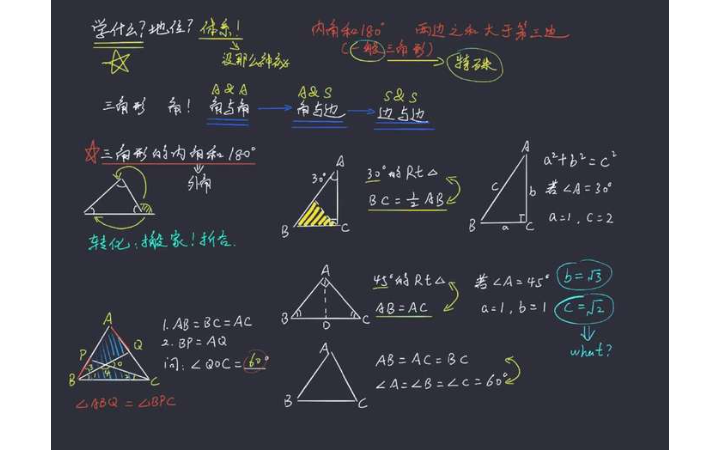 学什么?地位?体系!
没那么神秘
内角和180° 两边之和大于第三边
(一般三角形)
特殊
三角形 角! 角与角 角与边 边与边
A&A A&S S&S
三角形的内角和180°
外角
转化:搬家!折合.
A
30°
B C
30°的Rt△
BC=½AB
A
c b
B a C
a²+b²=c²
若∠A=30°
a=1, c=2
A
B D C
45°的Rt△
AB=AC
若∠A=45°
a=1, b=1
b=√3
c=√2
what?
A
P Q
O
B C
1. AB=BC=AC
2. BP=AQ
问:∠QOC=60°
∠ABQ=∠BPC
A
B C
AB=AC=BC
∠A=∠B=∠C=60°